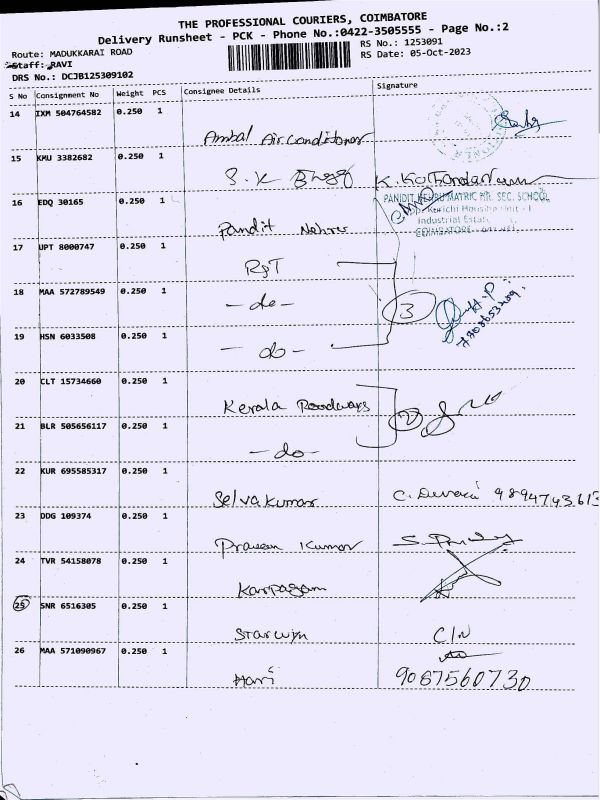 THE PROFESSIONAL COURIERS, COIMBATORE
Delivery Runsheet - PCK - Phone No.:0422-3505555 - Page No.:2
Route: MADUKKARAI ROAD
Staff: RAVI
DRS No.: DCJB125309102
RS No.: 1253091
RS Date: 05-Oct-2023
S No Consignment No Weight PCS Consignee Details Signature
14 IXM 504764582 0.250 1
Ambal Airconditioner
15 KMU 3382682 0.250 1
S.K K.Kothandaraman
16 EDQ 30165 0.250 1
Pandit Nehru
PANDIT NEHRU MATRIC HR. SEC. SCHOOL
Kurichi Housing Unit - I
Industrial Estate
COIMBATORE
17 UPT 8000747 0.250 1
RGT
18 MAA 572789549 0.250 1
- do - 3
19 HSN 6033508 0.250 1
- do -
20 CLT 15734660 0.250 1
Kerala Roadways 2
21 BLR 505656117 0.250 1
- do -
22 KUR 695585317 0.250 1
Selvakumar C. Devaraj 9894743613
23 DDG 109374 0.250 1
Praveen Kumar
24 TVR 54158078 0.250 1
Karpagam
25 SNR 6516305 0.250 1
Starwin C/N
26 MAA 571090967 0.250 1
Hari 9087560730